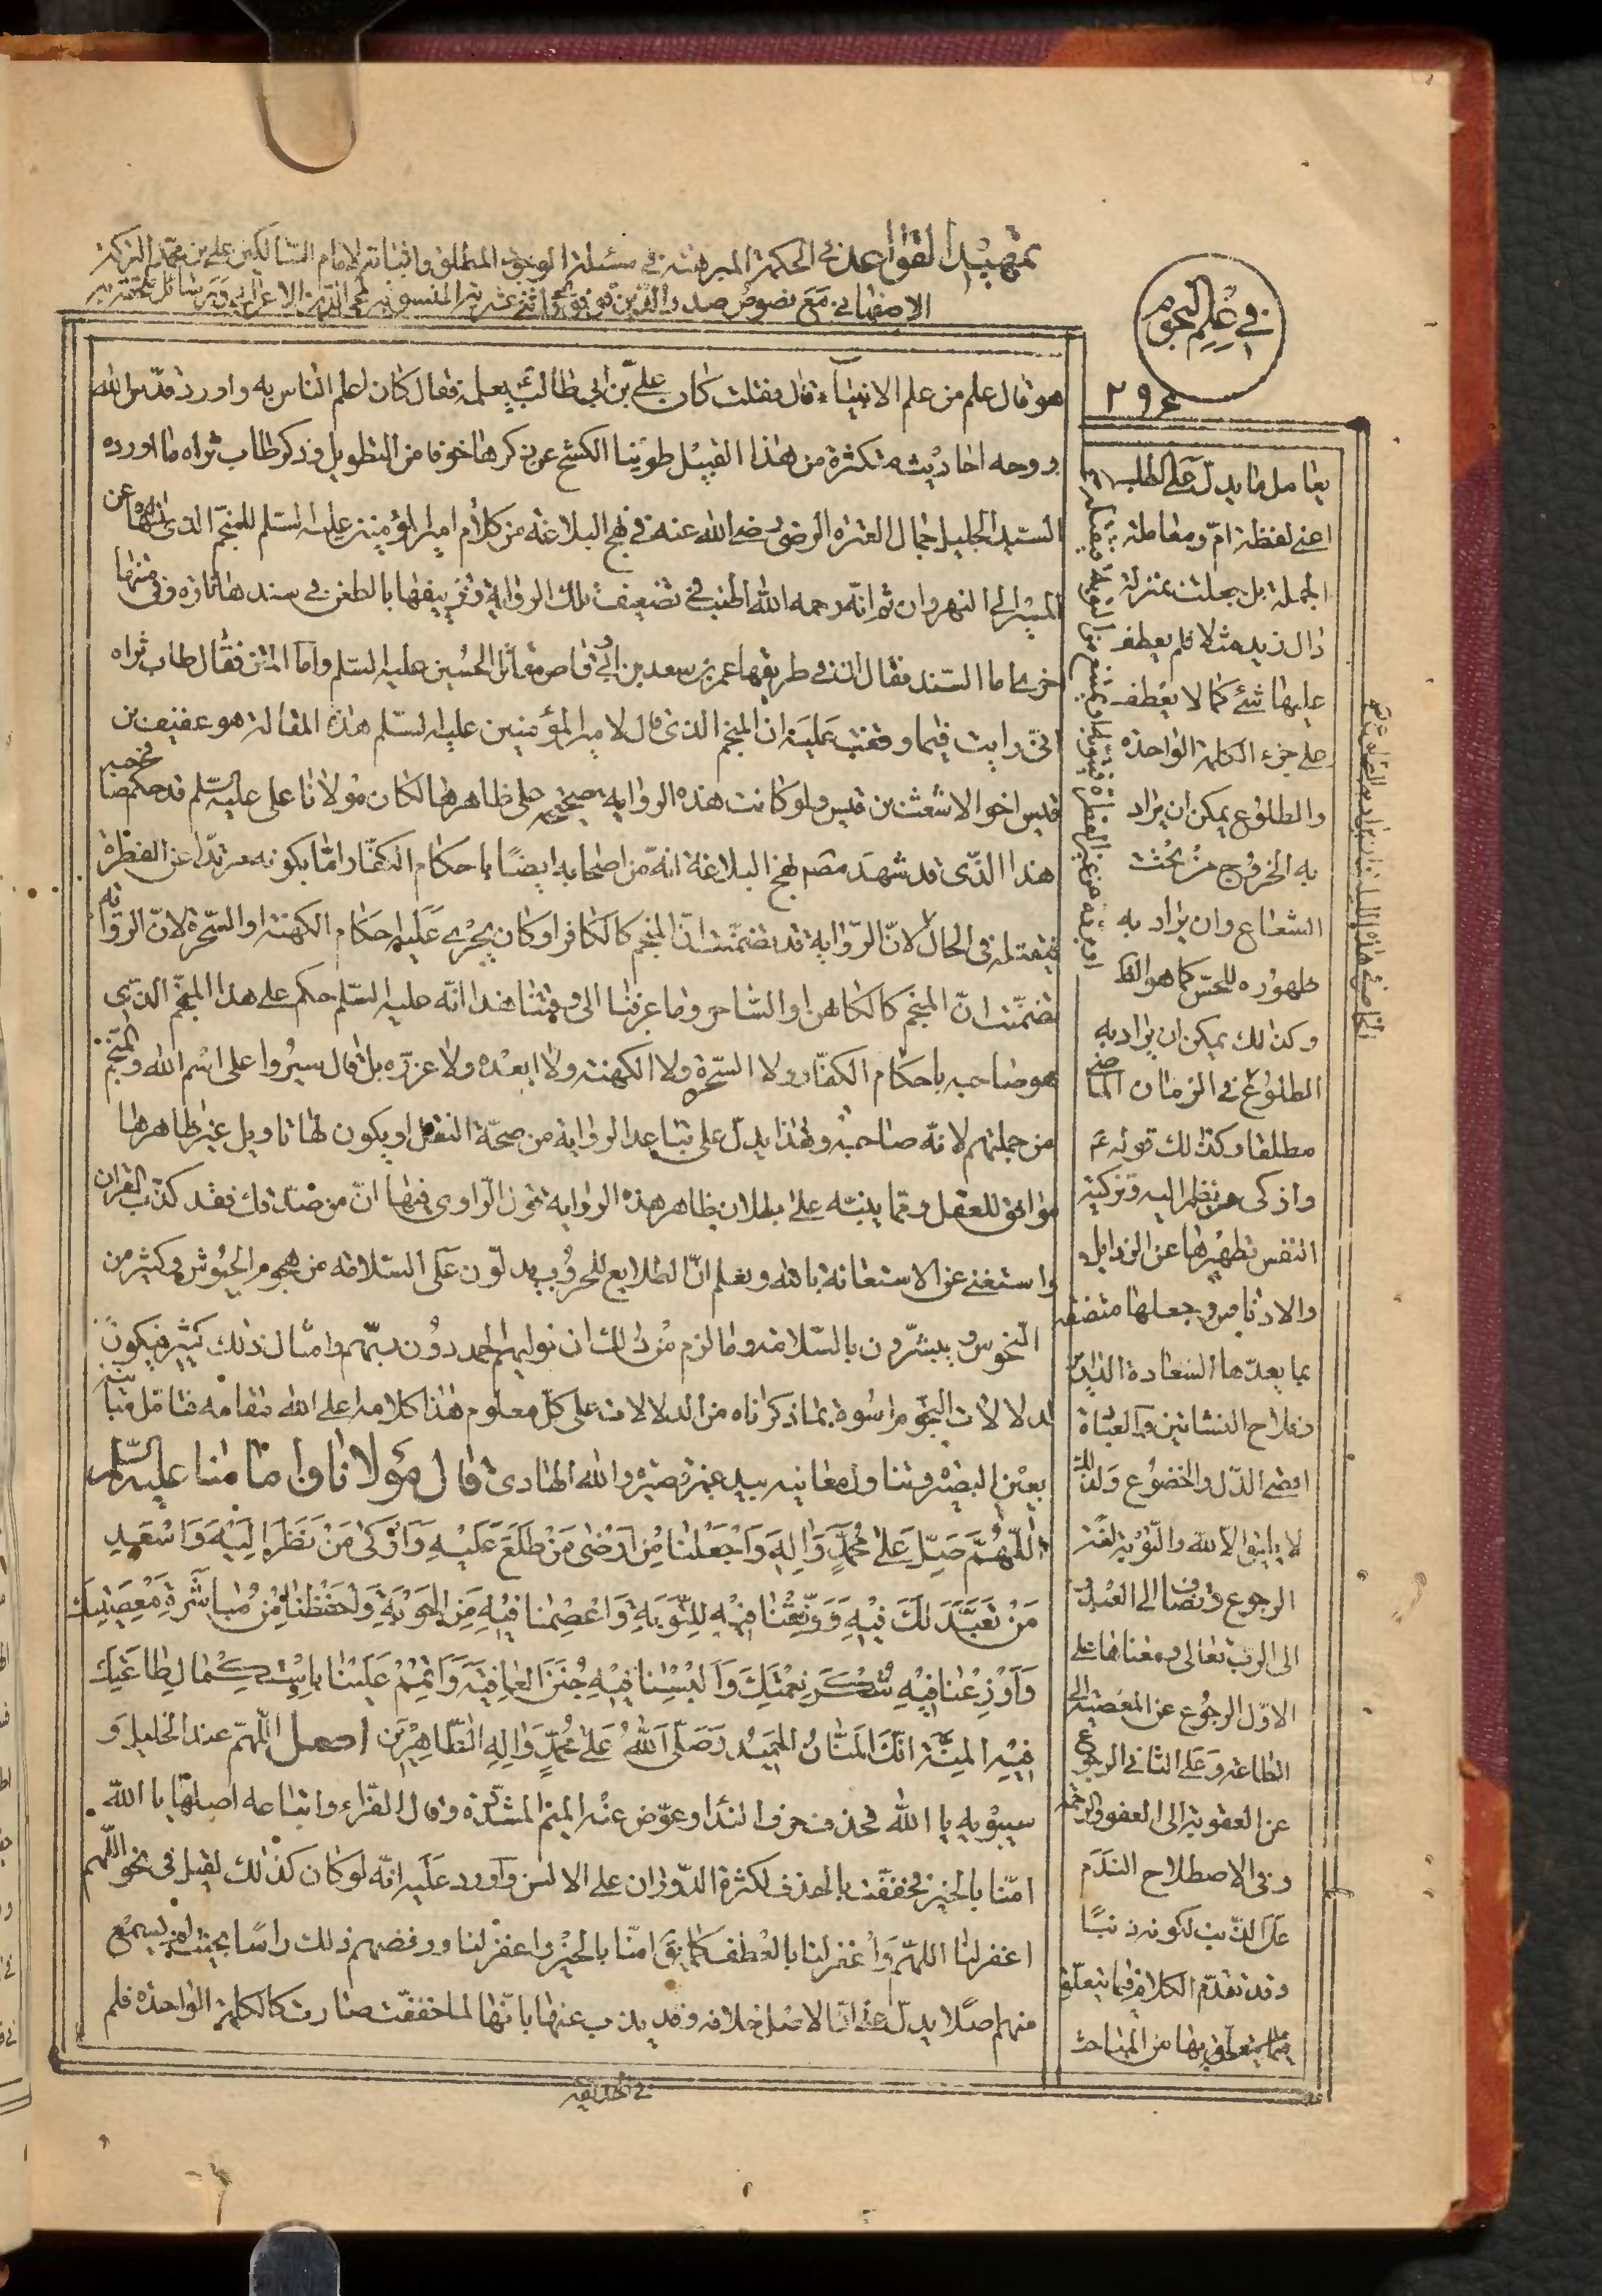 تمهيد القواعد في الحكمة المبرهنة في مسئلة الوجود المطلق واثباته للامام السالكين علي بن محمد التركة
الاصفهاني مع نصوص صدر الدين القونوي
في علم النجوم
٢٩٤
هو قال علم من علم الانبياء قال فقلت كان علي بن ابي طالب ع يعلمه فقال كان اعلم الناس به واورد قدس الله
روحه احاديث متكثرة من هذا القبيل طوينا الكشح عن ذكرها خوفا من التطويل وذكر طاب ثراه ما اورده
السيد الجليل جمال العترة الرضي رضي الله عنه في نهج البلاغة من كلام امير المؤمنين عليه السلم للمنجم الذي نهاه عن
المسير الى النهروان ثم انه رحمه الله اطنب في تضعيف تلك الرواية وتزييفها بالطعن في سندها تارة وفي متنها
اخرى اما السند فقال ان في طريقها عمر بن سعد بن ابي وقاص مقاتل الحسين عليه السلم واما المتن فقال طاب ثراه
اني رايت فيما وقفت عليه ان المنجم الذي قال لامير المؤمنين عليه السلم هذه المقالة هو عفيف بن
قيس اخو الاشعث بن قيس ولو كانت هذه الرواية صحيحة على ظاهرها لكان مولانا علي عليه السلم قد حكم في صاحبه
هذا الذي قد شهد مصنف نهج البلاغة انه من اصحابه ايضا باحكام الكفار اما بكونه مرتدا عن الفطرة
فيقتله في الحال لان الرواية قد تضمنت ان المنجم كالكافر او كان يجري عليه احكام الكهنة او السحرة لان الرواية
تضمنت ان المنجم كالكاهن او الساحر وما عرفنا الى وقتنا هذا انه عليه السلم حكم على هذا المنجم الذي
هو صاحبه باحكام الكفار ولا السحرة ولا الكهنة ولا ابعده ولا عزره بل قال سيروا على اسم الله والمنجم
من جملتهم لانه صاحبه وهذا يدل على تباعد الرواية من صحة النقل او يكون لها تاويل غير ظاهرها
موافق للعقل ومما ينبه على بطلان ظاهر هذه الرواية قول الراوي فيها ان من صدقك فقد كذب القران
واستغنى عن الاستعانة بالله ونعلم ان الطلايع للحروب يدلون على السلامة من هجوم الجيوش وكثير من
النحوس ويبشرون بالسلامة وما لزم من ذلك ان نوليهم الحمد دون ربهم وامثال ذلك كثير فيكون
لدلالات النجوم اسوة بما ذكرناه من الدلالات على كل معلوم هذا كلامه اعلى الله مقامه فتامل مبانيه
بعين البصيرة وتناول معانيه بيد غير قصيرة والله الهادي قال مولانا وامامنا عليه السلم
اللهم صل على محمد واله واجعلنا من ارضى من طلع عليه وازكى من نظر اليه واسعد
من تعبد لك فيه ووفقنا فيه للتوبة واعصمنا فيه من الحوبة واحفظنا من مباشرة معصيتك
واوزعنا فيه شكر نعمتك والبسنا فيه جنن العافية واتمم علينا باستكمال طاعتك
فيه المنة انك المنان الحميد وصلى الله على محمد واله الطاهرين اصل اللهم عند الخليل و
سيبويه يا الله فحذف حرف الندا وعوض عنه الميم المشددة وقال الفراء واتباعه اصلها يا الله
امنا بالخير فخففت بالحذف لكثرة الدوران على الالسن واورد عليه انه لو كان كذلك لقيل في نحو اللهم
اغفر لنا اللهم واغفر لنا بالعطف كما يق امنا بالخير واغفر لنا ورفضهم ذلك راسا بحيث لم يسمع
منهم اصلا يدل على ان الاصل خلافه وقد يذب عنها بانها لما خففت صارت كالكلمة الواحدة فلم
يعامل ما يدل على الطلب
اعني لفظة ام ومعاملة
الجملة بل جعلت بمنزلة
دال زيد مثلا فلم يعطف
عليها شئ كما لا يعطف
على جزء الكلمة الواحدة
والطلوع يمكن ان يراد
به الخروج من تحت
الشعاع وان يراد به
ظهوره للحس كما هو الظ
وكذلك يمكن ان يراد به
الطلوع في الزمان الماضي
مطلقا وكذلك قوله ع
وازكى من نظر اليه وتزكية
النفس تطهيرها عن الرذايل
والادناس وجعلها متصفة
بما يعدها السعادة الدارين
وفلاح النشاتين والعبادة
اقصى الذل والخضوع ولذلك
لا يليق الا لله والتوبة لغة
الرجوع وتضاف الى العبد و
الى الرب تعالى ومعناها على
الاول الرجوع عن المعصية الى
الطاعة وعلى الثاني الرجوع
عن العقوبة الى العفو والرحمة
وفي الاصطلاح الندم
على الذنب لكونه ذنبا
وقد تقدم الكلام فيما يتعلق
بها من المباحث
في الحديقة